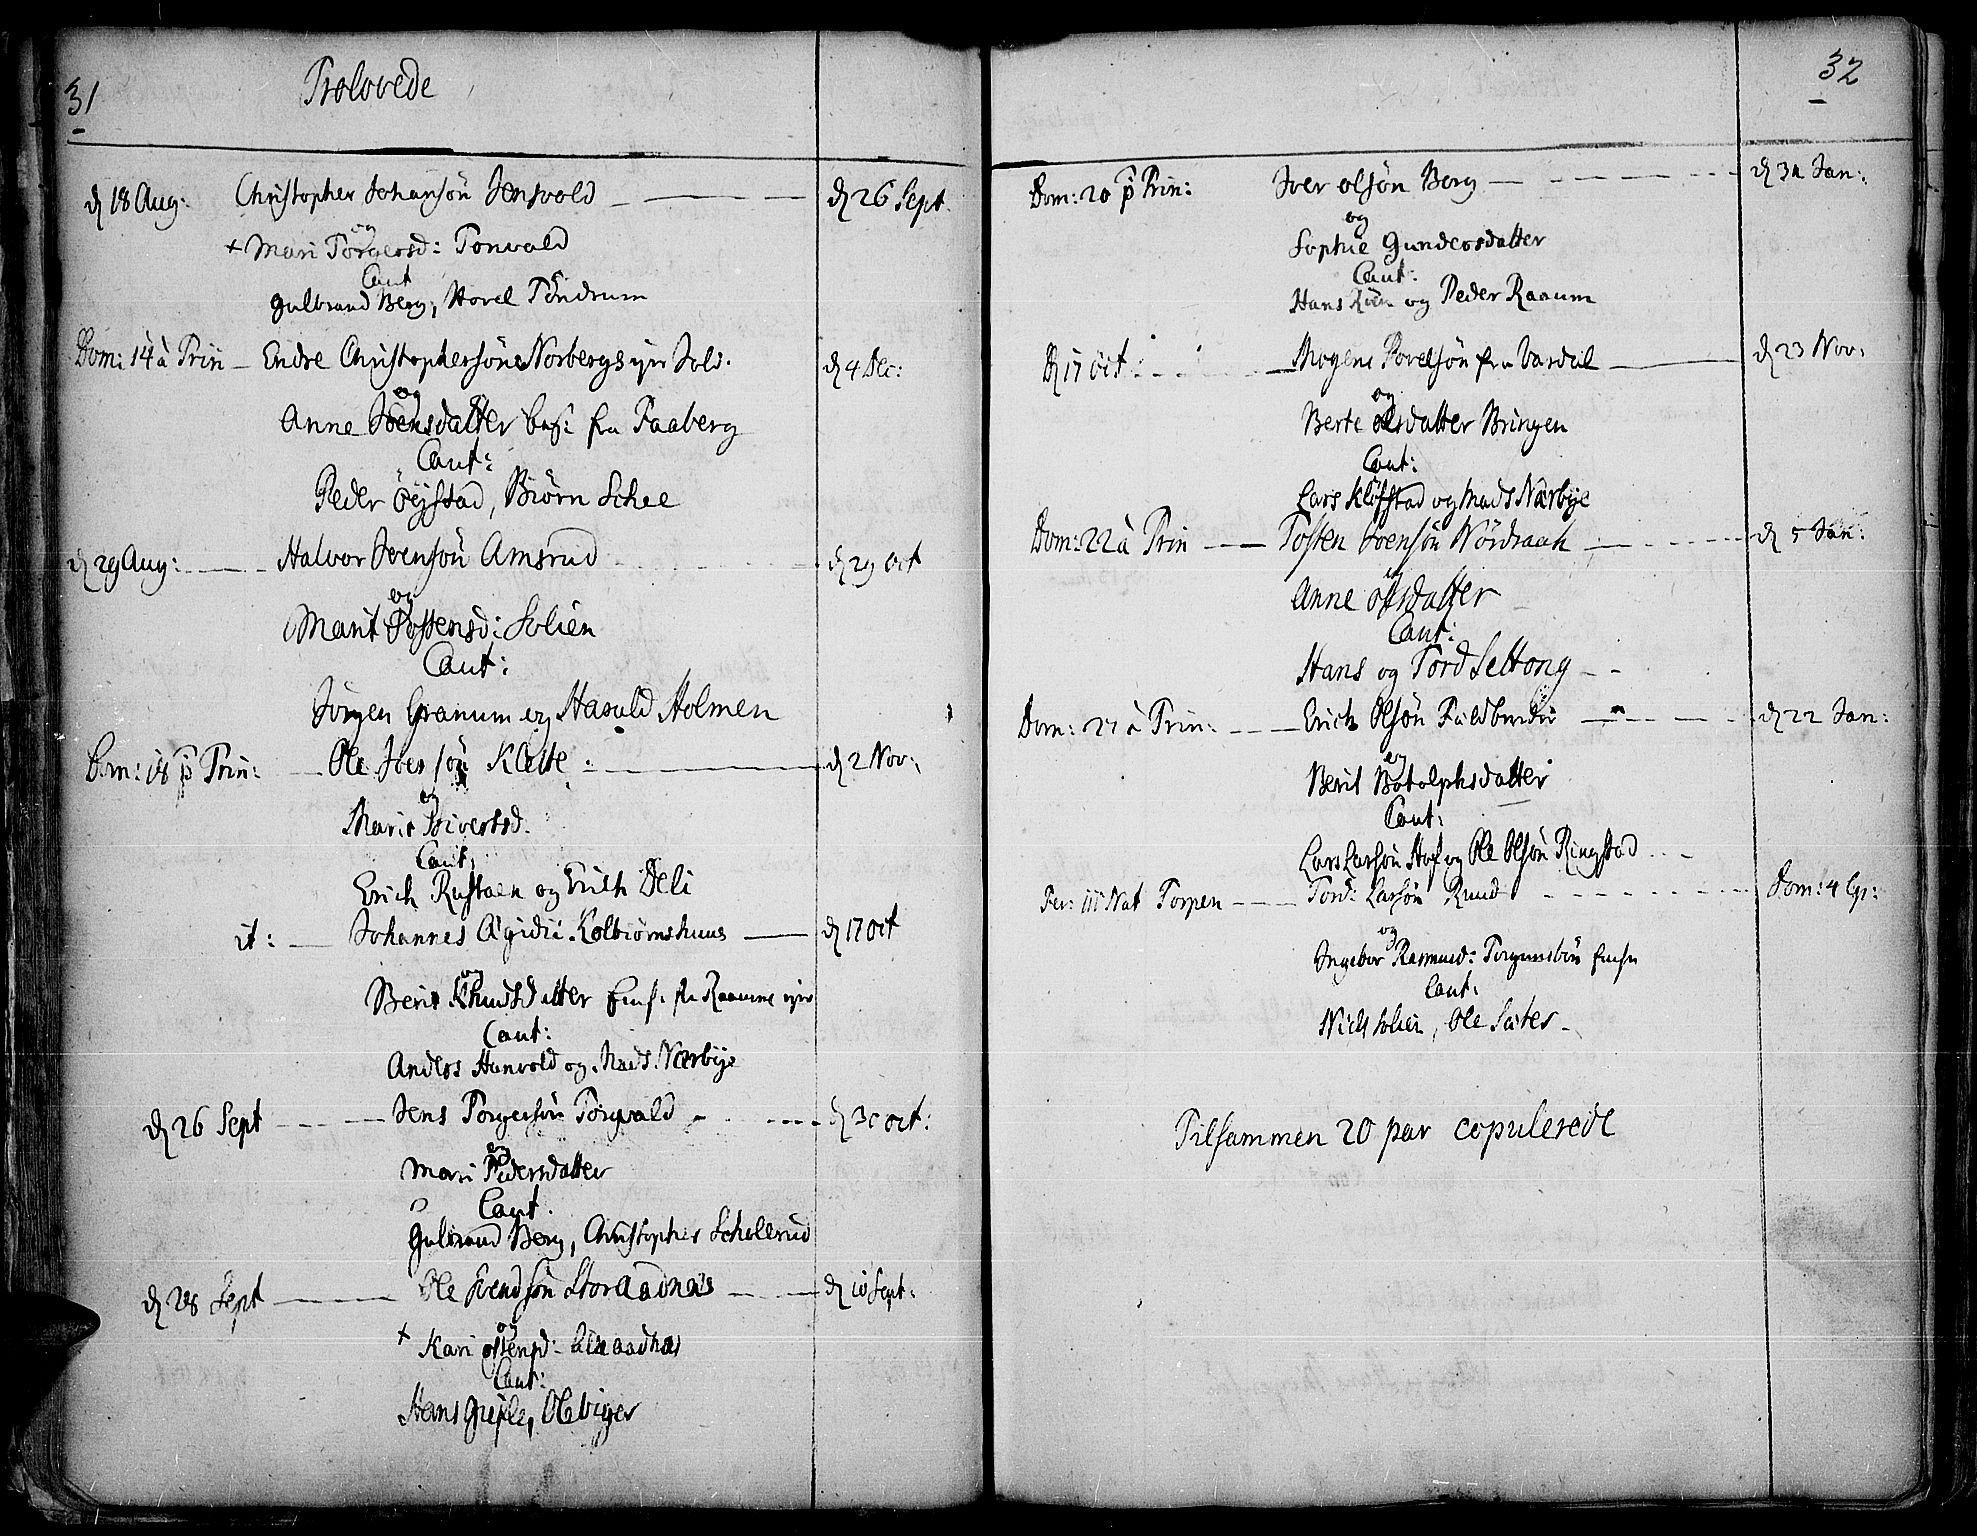 31
Trolovede
d 18 Aug: Christopher Johansøn Jensvold — d 26 Sept
og
+ Mari Torgersd: Tonvold
Caut
Gulbrand Berg, Hovel Tøndrum
Dom: 14 à Trin — Endre Christophersøn Norbergs Sold. d 4 Dec:
og
Anne Joensdatter fra Faaberg
Caut:
Peder Øijstad, Biørn Schee
d 29 Aug: — Halvor Ivensøn Amsrud d 29 Oct
og
Marit Tostensd: Solien
Caut:
Jørgen Granum og Harald Holmen
Dom: 18 p Trin: — Ole Iversøn Klette: — d 2 Nov:
og
Marit Sivertsd.
Caut:
Erich Rustaen og Erich Deli
it: — Johannes Ægidii Kolbiørnshuus — d 17 Oct
og
Berit Khudsdatter fra Raaums
Caut:
Anders Hanvold og Mads Nærbije
d 26 Sept — Jens Torgersøn Torgvald d 30 Oct:
og
Mari Pedersdatter
Caut.
Gulbrand Berg, Christopher Schollerud
d 28 Sept — Ole Svendsøn Storaadnæs — d 10 Sept:
og
+ Kari Ostensd: Lilleaadnæs
Caut:
Hans Giefle, Ole Viger
32
Dom: 20 p Trin: Iver Olsøn Berg — d 31 Jan:
og
Sophie Gundersdatter
Caut:
Hans og Peder Raaum
d 17 Oct: — Mogens Povelsøn fra Vardal — d 23 Nov:
og
Berte Olsdatter Bringen
Caut:
Lars Kløfstad og Mads Nærbije
Dom: 22 à Trin — Tosten Ivensøn Nordraak — d 5 Jan:
og
Anne Olsdatter
Caut:
Hans og Tord Seltong —
Dom: 27 à Trin: — Erich Olsøn — d 22 Jan:
og
Berit Botolphsdatter
Caut:
Lars Larsøn Hof og Ole Olsøn Ringstad
Fer: III Nat Torpen — Tord: Larsøn Ruud — Dom: 4 Ep:
og
Ingebor Rasmusd: Torgunsbøn
Caut:
Niels Solien, Ole Sæter
Tilsammen 20 par copulerede